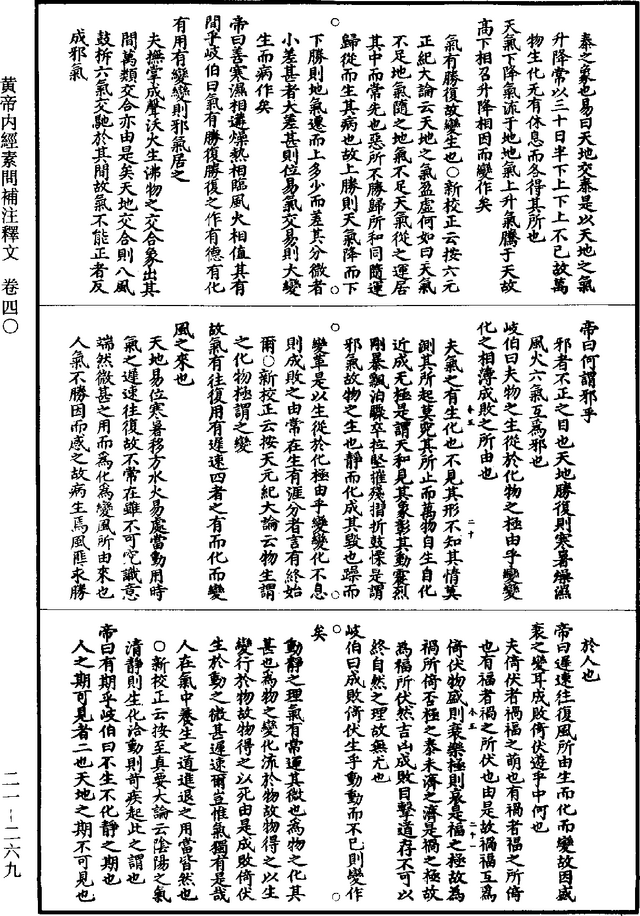 泰之象也易曰天地交泰是以天地之氣
升降常以三十日半下上下上不已故萬
物生化无有休息而各得其所也
天氣下降氣流于地地氣上升氣騰于天故
高下相召升降相因而變作矣
氣有勝復故變生也○新校正云按六元
正紀大論云天地之氣盈虛何如曰天氣
不足地氣隨之地氣不足天氣從之運居
其中而常先也惡所不勝歸所和同隨運
歸從而生其病也故上勝則天氣降而下
下勝則地氣遷而上多少而差其分微者
小差甚者大差甚則位易氣交易則大變
生而病作矣
帝曰善寒濕相遘燥熱相臨風火相值其有
間乎岐伯曰氣有勝復勝復之作有德有化
有用有變變則邪氣居之
夫撫掌成聲沃火生沸物之交合象出其
間萬類交合亦由是矣天地交合則八風
鼓拆六氣交馳於其間故氣不能正者反
成邪氣
帝曰何謂邪乎
邪者不正之目也天地勝復則寒暑燥濕
風火六氣互爲邪也
岐伯曰夫物之生從於化物之極由乎變變
化之相薄成敗之所由也
夫氣之有生化也不見其形不知其情莫
測其所起莫究其所止而萬物自生自化
近成无極是謂天和見其象彰其動震烈
剛暴飄泊驟卒拉堅摧殘摺折鼓慄是謂
邪氣故物之生也靜而化成其毀也躁而
變革是以生從於化極由乎變變化不息
則成敗之由常在生有涯分者言有終始
爾○新校正云按天元紀大論云物生謂
之化物極謂之變
故氣有往復用有遲速四者之有而化而變
風之來也
天地易位寒暑移方水火易處當動用時
氣之遲速往復故不常在雖不可究識意
端然微甚之用而爲化爲變風所由來也
人氣不勝因而感之故病生焉風匪求勝
於人也
帝曰遲速往復風所由生而化而變故因盛
衰之變耳成敗倚伏遊乎中何也
夫倚伏者禍福之萌也有禍者福之所倚
也有福者禍之所伏也由是故禍福互爲
倚伏物盛則衰樂極則哀是福之極故爲
禍所倚否極之泰未濟之濟是禍之極故
爲福所伏然吉凶成敗目擊道存不可以
終自然之理故無尤也
岐伯曰成敗倚伏生乎動動而不已則變作
矣
動靜之理氣有常運其微也爲物之化其
甚也爲物之變化流於物故物得之以生
變行於物故物得之以死由是成敗倚伏
生於動之微甚遲速爾豈惟氣獨有是哉
人在氣中養生之道進退之用當皆然也
○新校正云按至真要大論云陰陽之氣
清靜則生化治動則苛疾起此之謂也
帝曰有期乎岐伯曰不生不化靜之期也
人之期可見者二也天地之期不可見也
黄帝内經素問補注釋文　卷四〇
二一－二六九